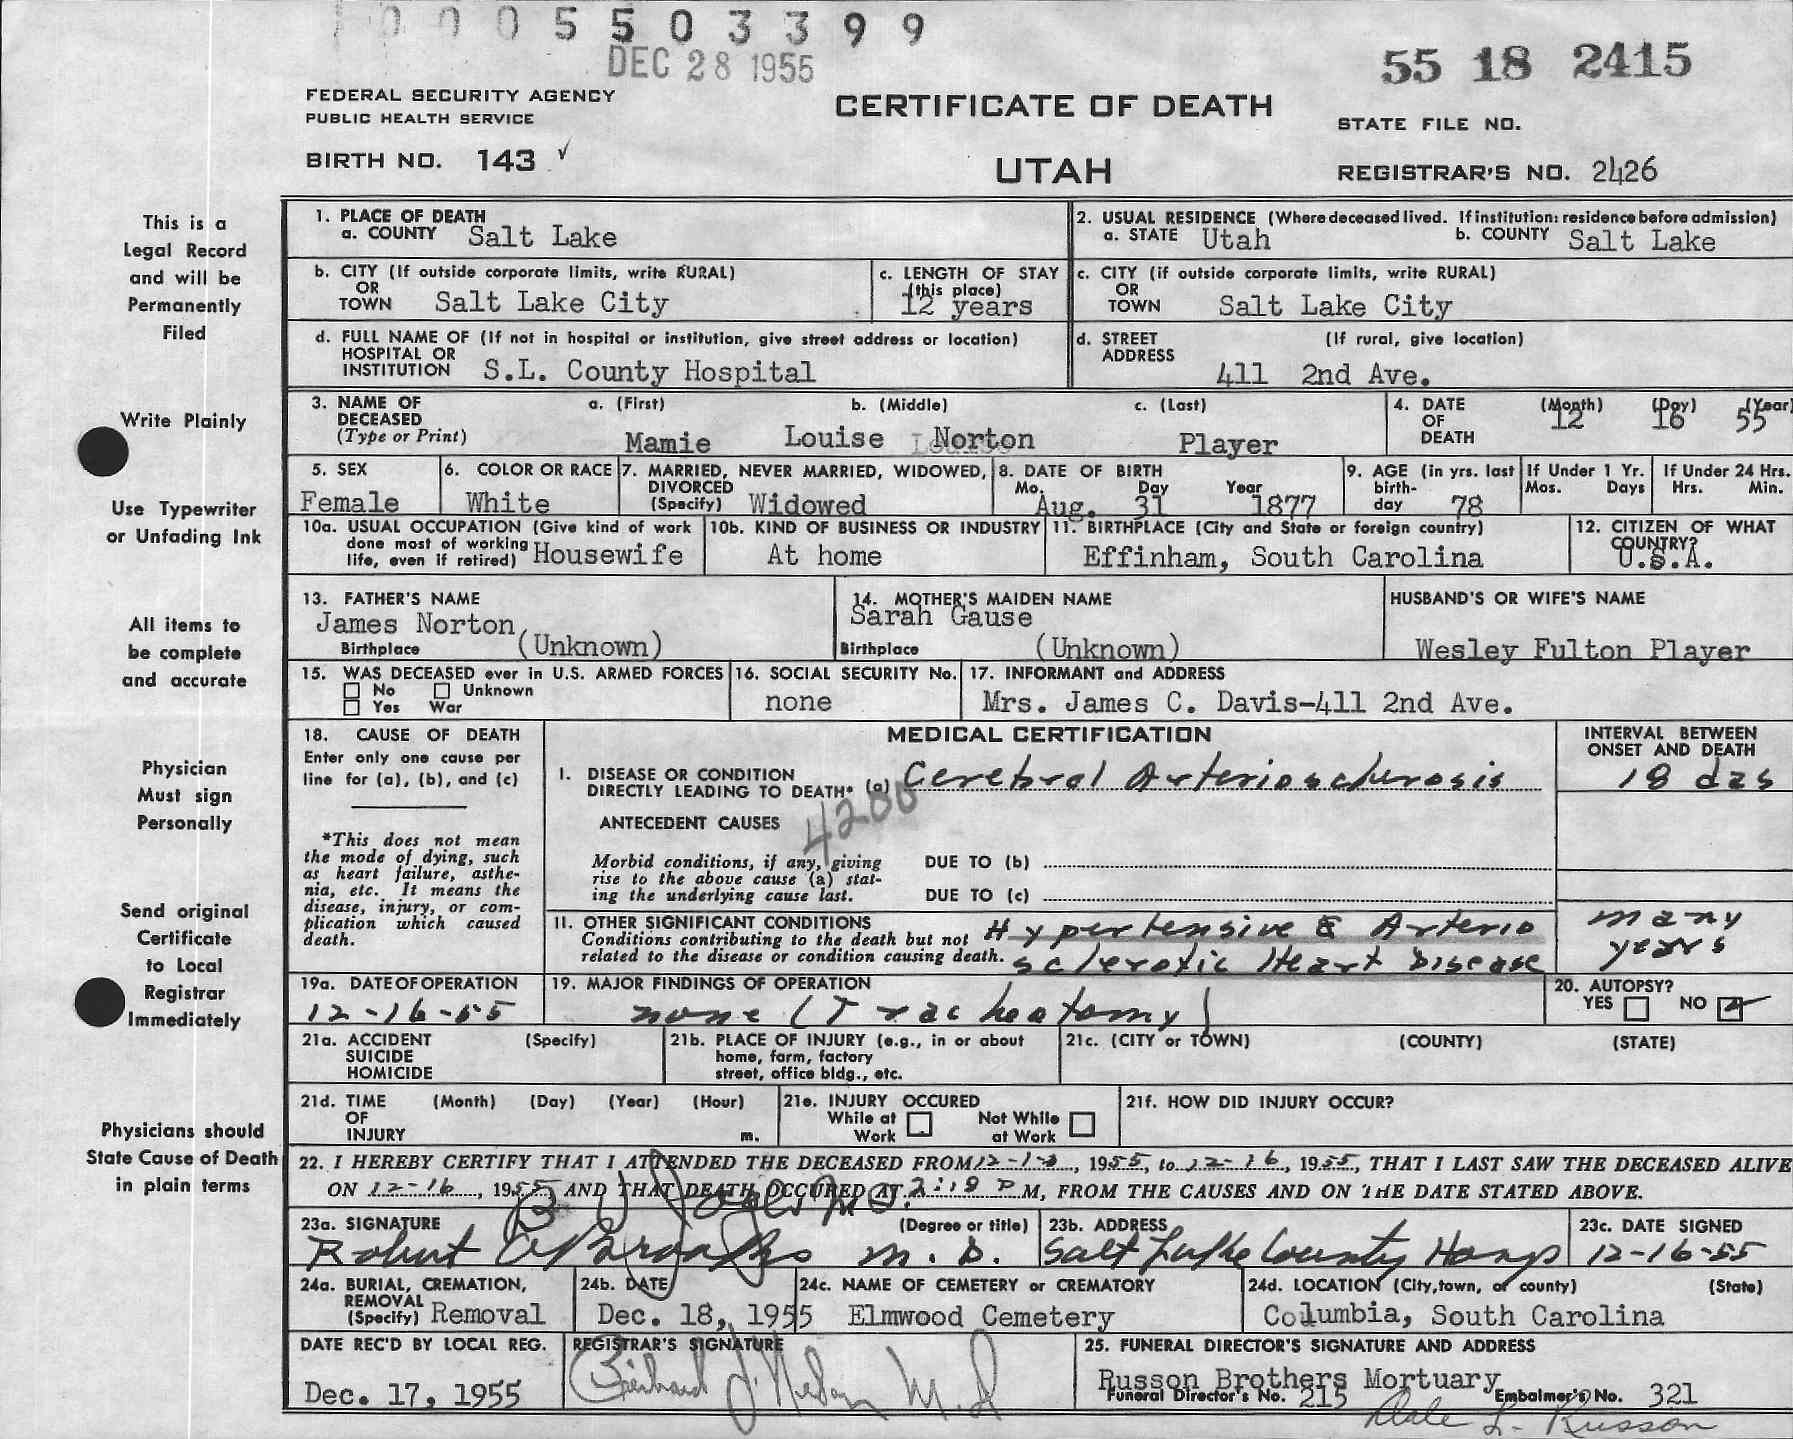 0005503399
DEC 28 1955
55 18 2415
FEDERAL SECURITY AGENCY
PUBLIC HEALTH SERVICE
CERTIFICATE OF DEATH
STATE FILE NO.
BIRTH NO. 143 ✓
UTAH
REGISTRAR'S NO. 2426
This is a
Legal Record
and will be
Permanently
Filed
Write Plainly
Use Typewriter
or Unfading Ink
All items to
be complete
and accurate
Physician
Must sign
Personally
Send original
Certificate
to Local
Registrar
Immediately
Physicians should
State Cause of Death
in plain terms
1. PLACE OF DEATH
a. COUNTY Salt Lake
2. USUAL RESIDENCE (Where deceased lived. If institution: residence before admission)
a. STATE Utah b. COUNTY Salt Lake
b. CITY (If outside corporate limits, write RURAL)
OR
TOWN Salt Lake City
c. LENGTH OF STAY
(this place)
12 years
c. CITY (if outside corporate limits, write RURAL)
OR
TOWN Salt Lake City
d. FULL NAME OF (If not in hospital or institution, give street address or location)
HOSPITAL OR
INSTITUTION S.L. County Hospital
d. STREET (If rural, give location)
ADDRESS
411 2nd Ave.
3. NAME OF a. (First) b. (Middle) c. (Last)
DECEASED
(Type or Print) Mamie Louise Norton Player
4. DATE (Month) (Day) (Year)
OF 12 16 55
DEATH
5. SEX
Female
6. COLOR OR RACE
White
7. MARRIED, NEVER MARRIED, WIDOWED,
DIVORCED
(Specify) Widowed
8. DATE OF BIRTH
Mo. Day Year
Aug. 31 1877
9. AGE (in yrs. last
birth-
day 78
If Under 1 Yr.
Mos. Days
If Under 24 Hrs.
Hrs. Min.
10a. USUAL OCCUPATION (Give kind of work
done most of working
life, even if retired) Housewife
10b. KIND OF BUSINESS OR INDUSTRY
At home
11. BIRTHPLACE (City and State or foreign country)
Effinham, South Carolina
12. CITIZEN OF WHAT
COUNTRY?
U.S.A.
13. FATHER'S NAME
James Norton
Birthplace (Unknown)
14. MOTHER'S MAIDEN NAME
Sarah Gause
Birthplace (Unknown)
HUSBAND'S OR WIFE'S NAME
Wesley Fulton Player
15. WAS DECEASED ever in U.S. ARMED FORCES
No Unknown
Yes War
16. SOCIAL SECURITY No.
none
17. INFORMANT and ADDRESS
Mrs. James C. Davis-411 2nd Ave.
18. CAUSE OF DEATH
Enter only one cause per
line for (a), (b), and (c)
*This does not mean
the mode of dying, such
as heart failure, asthe-
nia, etc. It means the
disease, injury, or com-
plication which caused
death.
MEDICAL CERTIFICATION
INTERVAL BETWEEN
ONSET AND DEATH
I. DISEASE OR CONDITION
DIRECTLY LEADING TO DEATH* (a) Cerebral Arteriosclerosis 18 das
4200
ANTECEDENT CAUSES
Morbid conditions, if any, giving
rise to the above cause (a) stat-
ing the underlying cause last.
DUE TO (b)
DUE TO (c)
II. OTHER SIGNIFICANT CONDITIONS
Conditions contributing to the death but not
related to the disease or condition causing death.
Hypertensive & Arterio
sclerotic Heart Disease
many
years
19a. DATE OF OPERATION
12-16-55
19. MAJOR FINDINGS OF OPERATION
none (Tracheotomy)
20. AUTOPSY?
YES NO
21a. ACCIDENT (Specify)
SUICIDE
HOMICIDE
21b. PLACE OF INJURY (e.g., in or about
home, farm, factory
street, office bldg., etc.
21c. (CITY or TOWN) (COUNTY) (STATE)
21d. TIME (Month) (Day) (Year) (Hour)
OF
INJURY m.
21e. INJURY OCCURED
While at Not While
Work at Work
21f. HOW DID INJURY OCCUR?
22. I HEREBY CERTIFY THAT I ATTENDED THE DECEASED FROM 12-1-, 1955, to 12-16, 1955, THAT I LAST SAW THE DECEASED ALIVE
ON 12-16, 1955, AND THAT DEATH OCCURED AT 2:18 P M, FROM THE CAUSES AND ON THE DATE STATED ABOVE.
23a. SIGNATURE (Degree or title)
Robert M. D.
23b. ADDRESS
Salt Lake County Hosp
23c. DATE SIGNED
12-16-55
24a. BURIAL, CREMATION,
REMOVAL
(Specify) Removal
24b. DATE
Dec. 18, 1955
24c. NAME OF CEMETERY or CREMATORY
Elmwood Cemetery
24d. LOCATION (City, town, or county) (State)
Columbia, South Carolina
DATE REC'D BY LOCAL REG.
Dec. 17, 1955
REGISTRAR'S SIGNATURE
M.D.
25. FUNERAL DIRECTOR'S SIGNATURE AND ADDRESS
Russon Brothers Mortuary
Funeral Director's No. 215 Embalmer's No. 321
Dale L. Russon